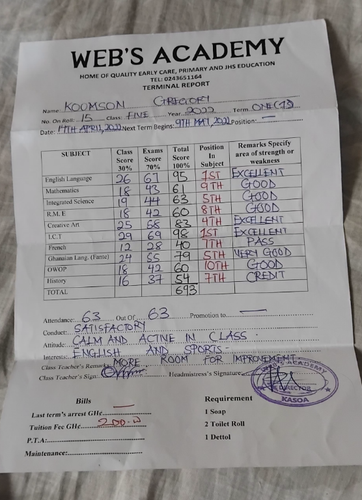 WEB'S ACADEMY
HOME OF QUALITY EARLY CARE, PRIMARY AND JHS EDUCATION
TEL: 0243651164
TERMINAL REPORT
Name: KOOMSON GREGORY
No. On Roll: 15 Class: FIVE Year: 2022 Term: ONE (1)
Date: 14TH APRIL, 2022 Next Term Begins: 9TH MAY, 2022 Position: —
SUBJECT Class Score 30% Exams Score 70% Total Score 100% Position In Subject Remarks Specify area of strength or weakness
English Language 26 67 95 1ST EXCELLENT
Mathematics 18 43 61 9TH GOOD
Integrated Science 19 44 63 5TH GOOD
R.M.E 18 42 60 8TH GOOD
Creative Art 25 58 83 4TH EXCELLENT
I.C.T 29 69 98 1ST EXCELLENT
French 12 28 40 7TH PASS
Ghanaian Lang. (Fante) 24 55 79 5TH VERY GOOD
OWOP 18 42 60 10TH GOOD
History 16 37 54 7TH CREDIT
TOTAL 693
Attendance: 63 Out Of 63 Promotion to —
Conduct: SATISFACTORY
Attitude: CALM AND ACTIVE IN CLASS
Interest: ENGLISH AND SPORTS.
Class Teacher's Remarks: MORE ROOM FOR IMPROVEMENT
Class Teacher's Sign: Headmistress's Signature
ACADEMY
DIRECTOR
KASOA
Bills Requirement
Last term's arrest GH¢ — 1 Soap
Tuition Fee GH¢ 200.00 2 Toilet Roll
P.T.A: 1 Dettol
Maintenance: